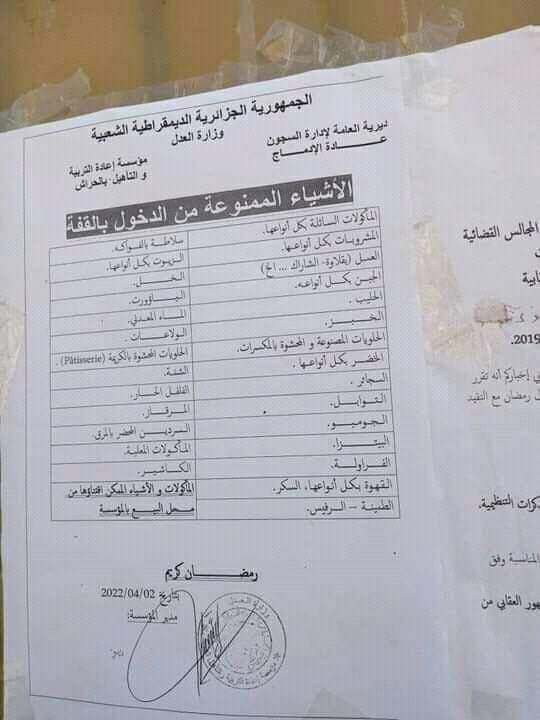 الجمهورية الجزائرية الديمقراطية الشعبية
وزارة العدل
ديرية العامة لإدارة السجون
عادة الإدماج
مؤسسة إعادة التربية
و التأهيل -بالحراش
الأشياء الممنوعة من الدخول بالقفة
المأكولات السائلة بكل أنواعها.
سلاطة بالفواكه.
المشروبات بكل أنواعها.
الزيوت بكل أنواعها.
العسل (بقلاوة- الشاراك ... الخ)
الخل.
الجبن بكل أنواعه.
الياؤورت.
الحليب.
الماء المعدني.
الخبز.
الولاعات.
الحلويات المصنوعة و المحشوة بالمكسرات.
الحلويات المحشوة بالكريمة (Pâtisserie).
الخضر بكل أنواعها.
الشمة.
السجائر.
الفلفل الحار.
التوابل.
المرقاز.
الجوميو.
السردين المحضر بالمرق.
البيتزا.
المأكولات المعلبة.
الفراولة.
الكاشير.
القهوة بكل أنواعها، السكر.
المأكولات و الأشياء الممكن اقتناؤها من
محل البيع بالمؤسسة
الطمينة – الرفيس.
رمضان كريم
بتاريخ 2022/04/02
مدير المؤسسة:
المجالس القضائية
2019.
ي إخباركم أنه تقرر
ل رمضان مع التقيد
كرات التنظيمية.
المناسبة وفق
هور العقابي من